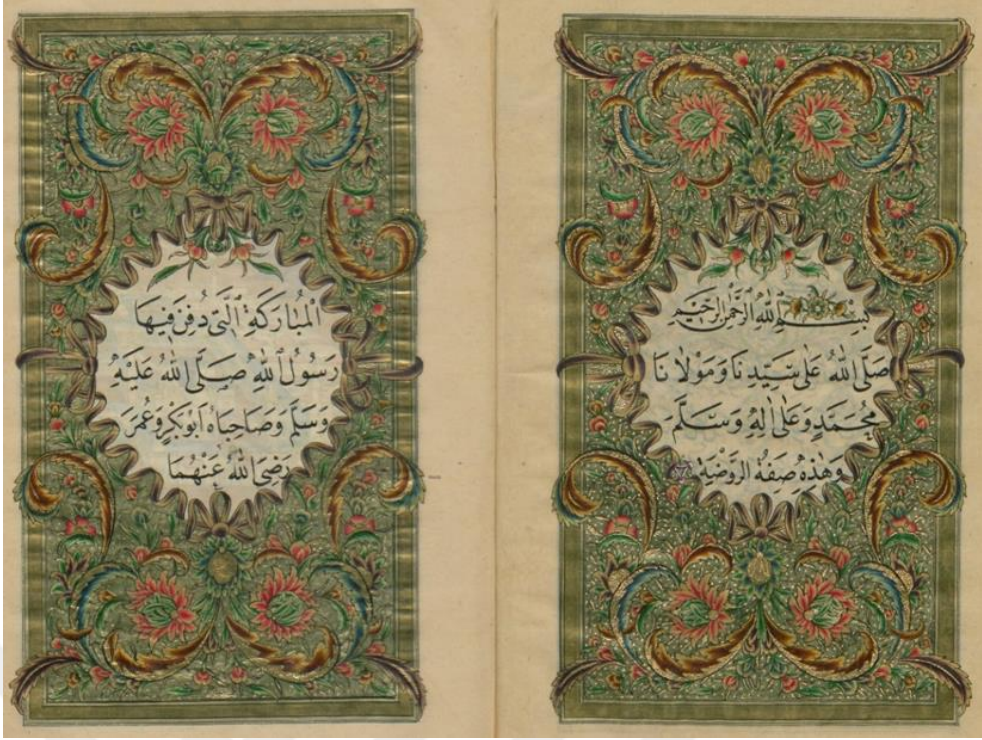 بِسْمِ اللهِ الرَّحْمٰنِ الرَّحِيْمِ
صَلَّى اللهُ عَلٰى سَيِّدِنَا وَمَوْلَانَا
مُحَمَّدٍ وَعَلٰى اٰلِهٖ وَسَلَّمَ
وَهٰذِهٖ صِفَةُ الرَّوْضَةِ
الْمُبَارَكَةِ الَّتٖى دُفِنَ فٖيهَا
رَسُولُ اللهِ صَلَّى اللهُ عَلَيْهِ
وَسَلَّمَ وَصَاحِبَاهُ اَبُوبَكْرٍ وَعُمَرَ
رَضِىَ اللهُ عَنْهُمَا